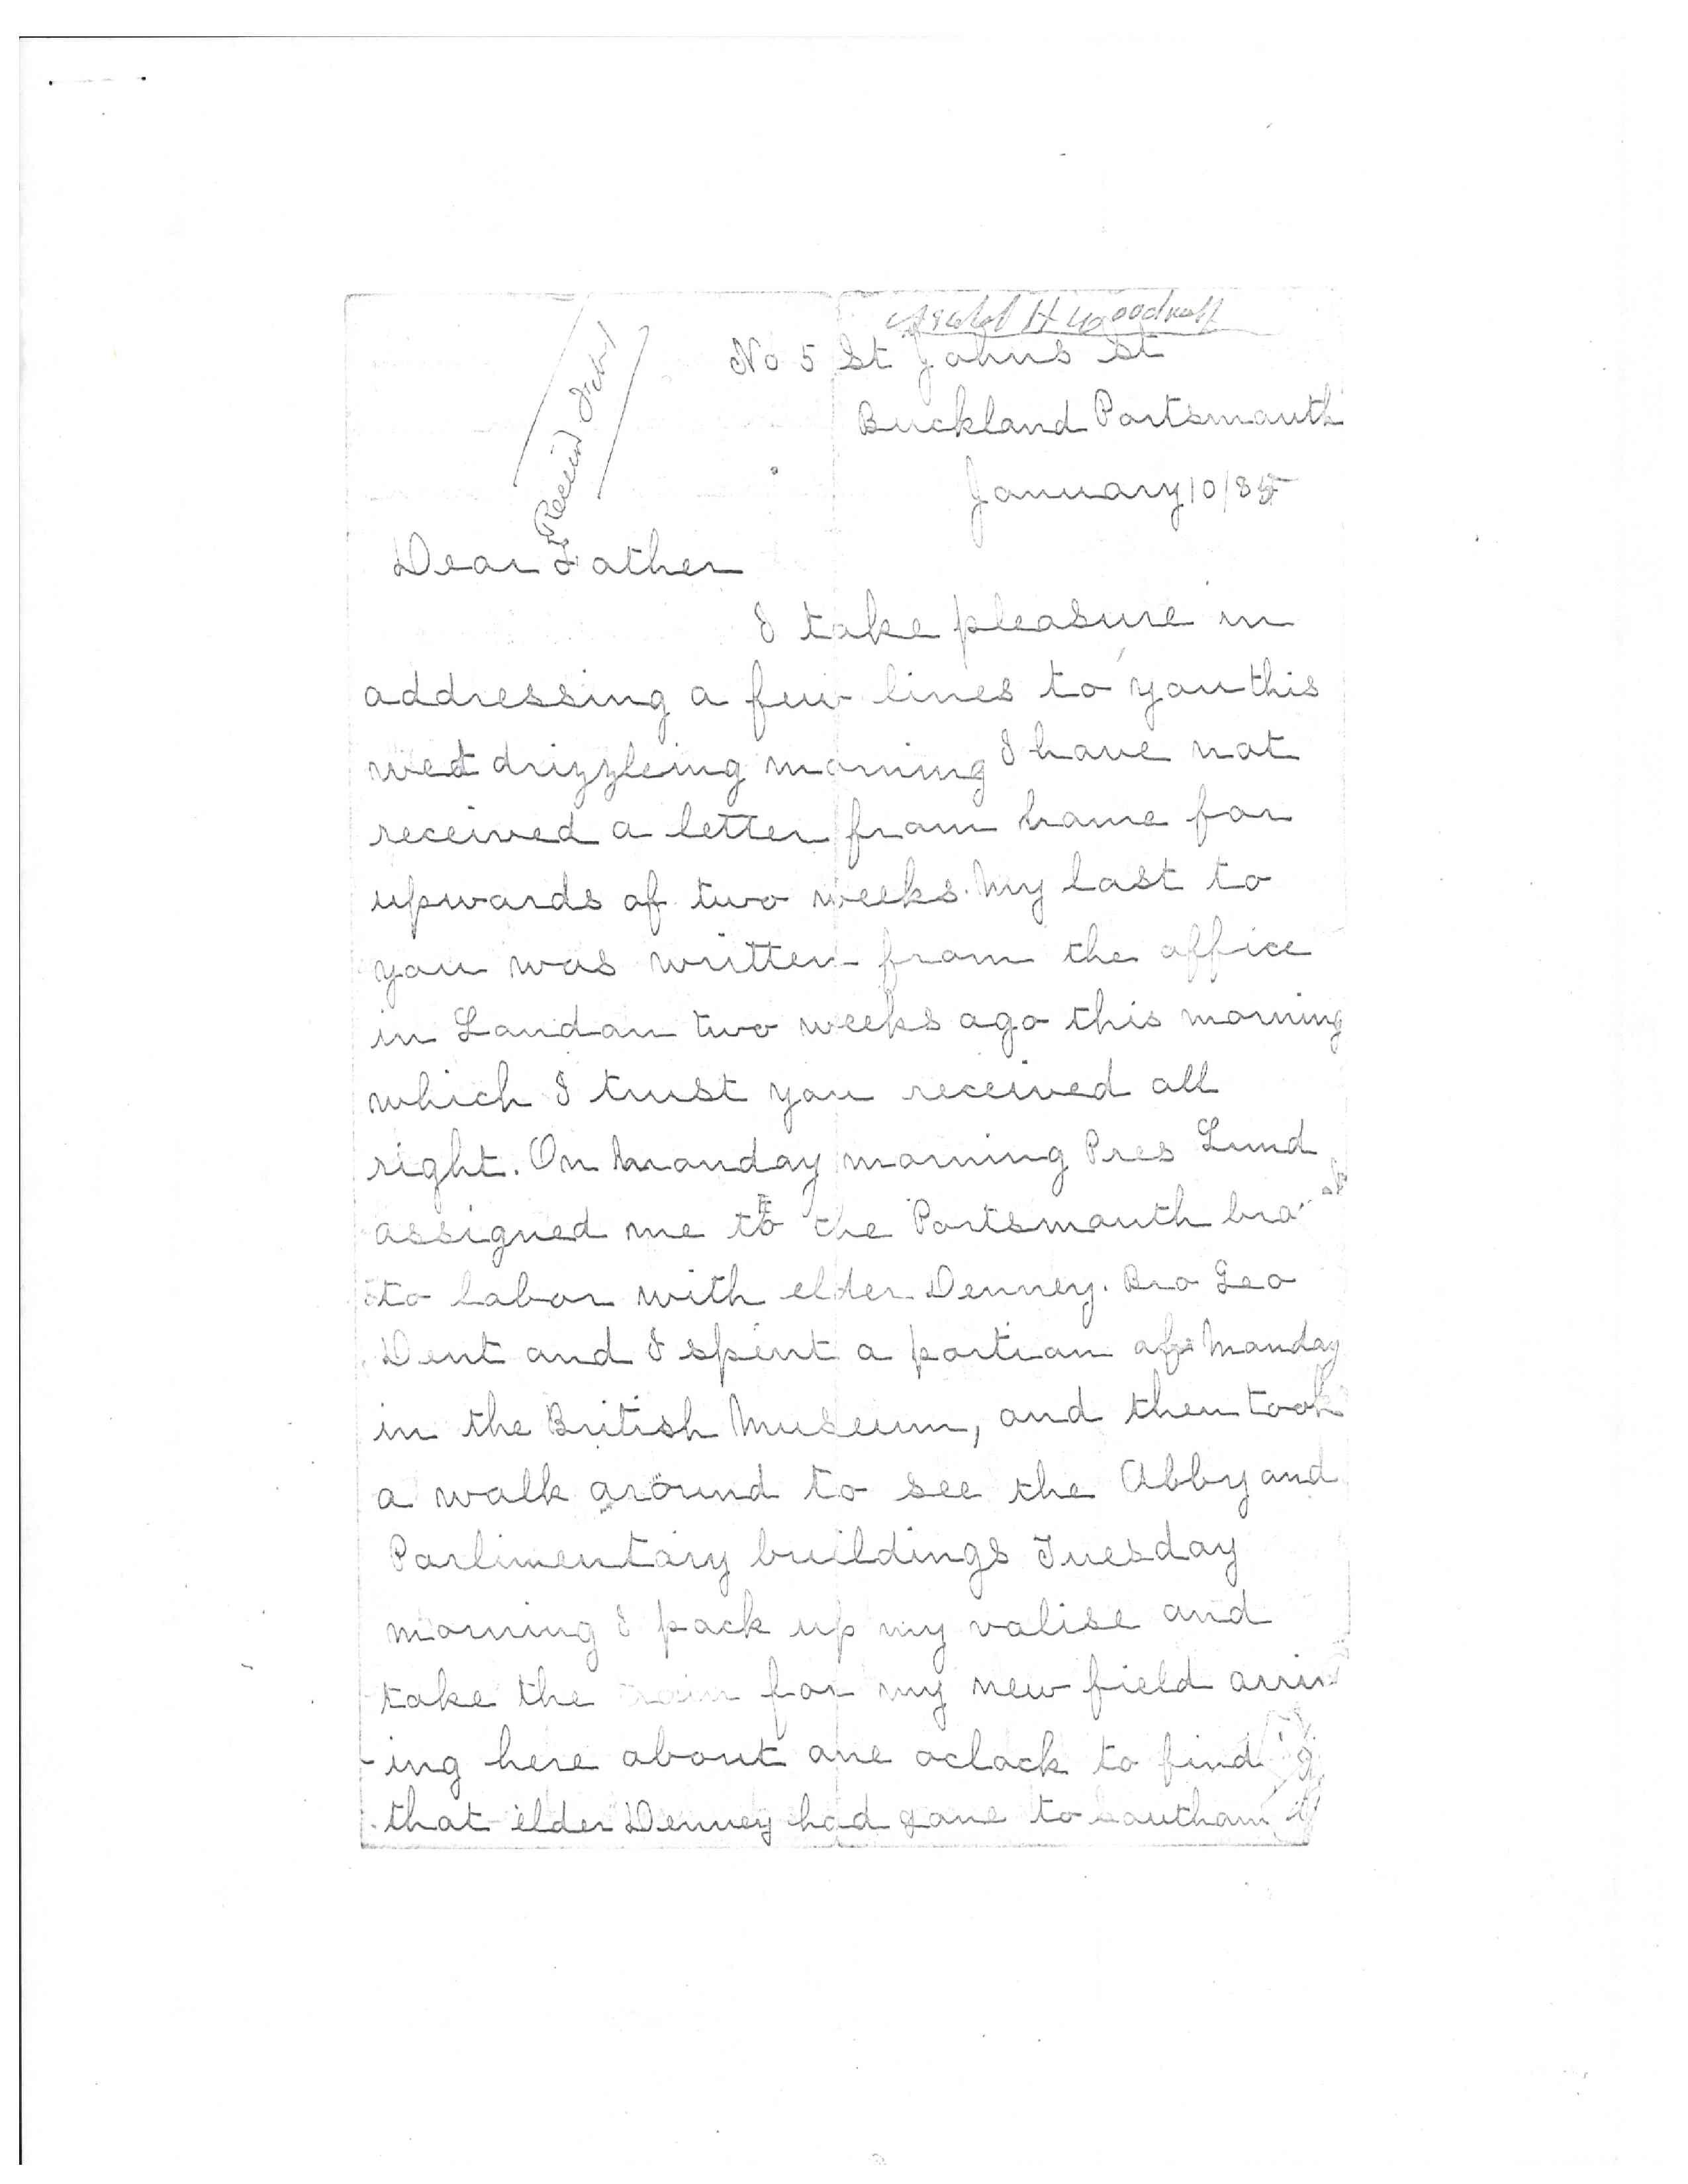 Asahel H Woodruff
Receivd Feb 1
No 5 St Johns St
Buckland Portsmouth
January 10/85
Dear Father
I take pleasure in
addressing a few lines to you this
wet drizzleing morning I have not
received a letter from home for
upwards of two weeks. My last to
you was written from the office
in London two weeks ago this morning
which I trust you received all
right. On Monday morning Pres Lund
assigned me to the Portsmouth bra
to labor with elder Denney. Bro Geo
Dent and I spent a portion of Monday
in the British Museum, and then took
a walk around to see the Abby and
Parlimentary buildings Tuesday
morning I pack up my valise and
take the train for my new field arriv
ing here about one oclock to find
that elder Denney had gone to Southam